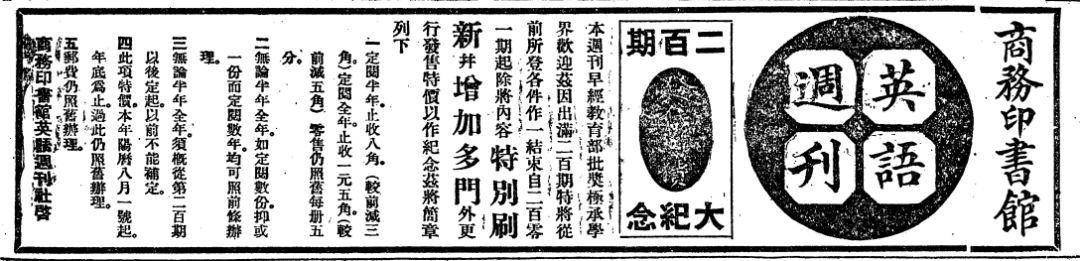 商務印書館
英語
週刊
二百期
大紀念
本週刊早經教育部批獎極承學
界歡迎茲因出滿二百期特將從
前所登各件作一結束自二百零
一期起除將內容特別刷
新并增加多門外更
行發售特價以作紀念茲將簡章
列下
一定閱半年。止收八角。（較前減三
角）定閱全年止收一元五角。（較
前減五角）零售仍照舊每册五
分。
二無論半年全年。如定閱數份抑或
一份而定閱數年。均可照前條辦
理。
三無論半年全年。須概從第二百期
以後定起。以前不能補定。
四此項特價。本年陽曆八月一號起。
年底爲止。過此仍照舊辦理。
五郵費仍照舊辦理。
商務印書館英語週刊社啓